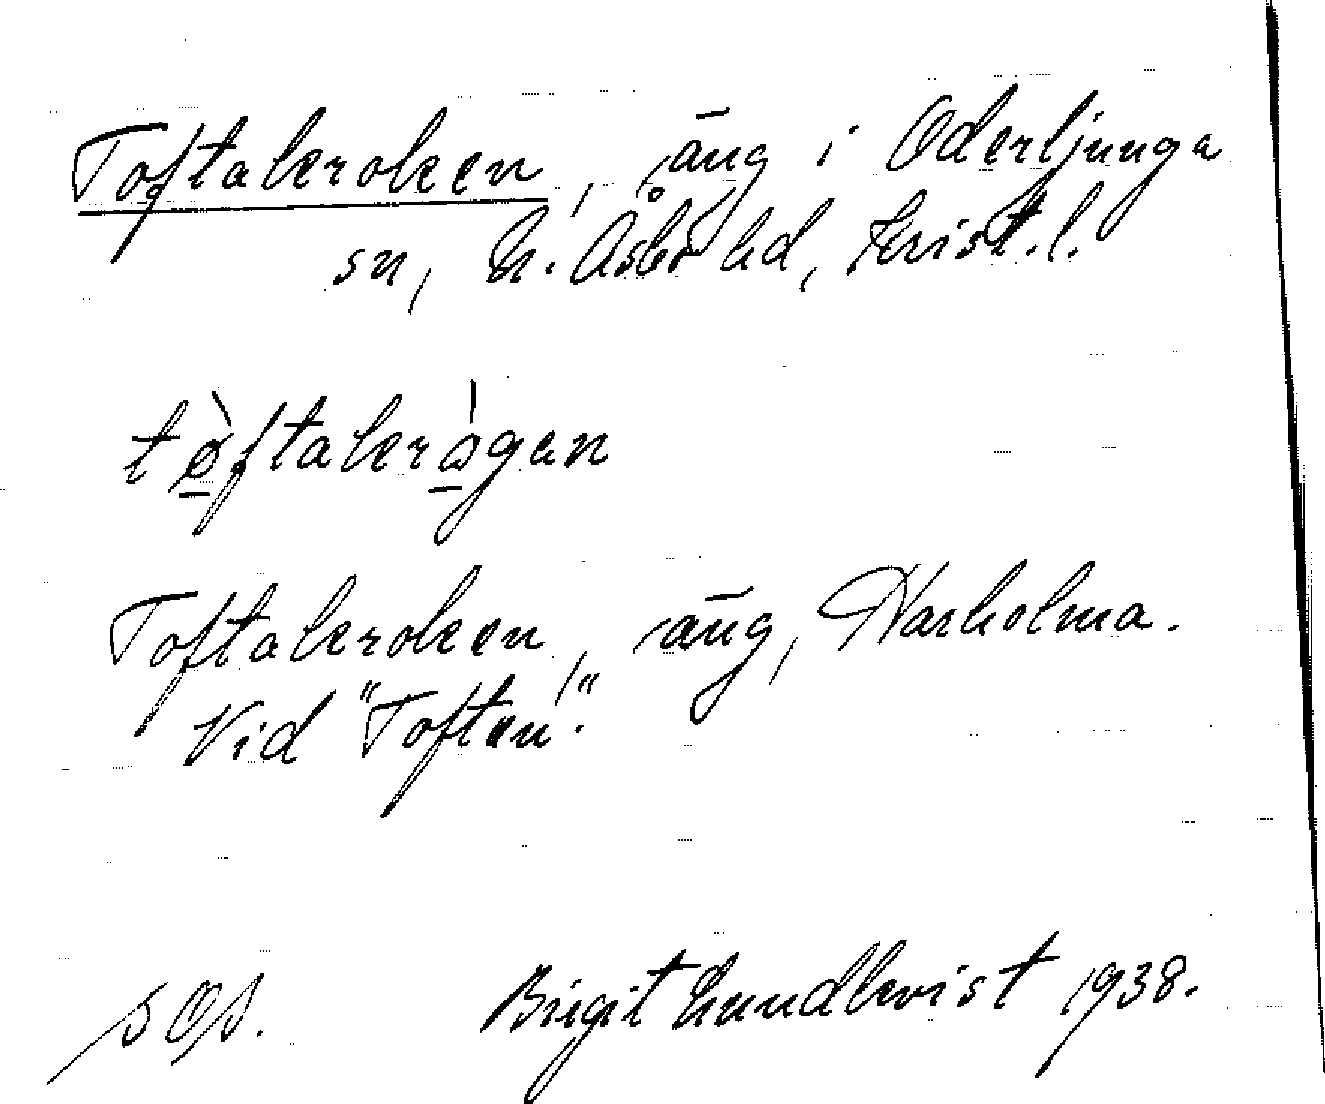 Toftakroken, äng i Oderljunga
sn, N. Åsbo hd, Krist. l.
tø̱̀ftakrǻ̱gen
Toftakroken, äng, Harholma.
Vid "Toften".
SOA.
Birgit Lundkvist 1938.